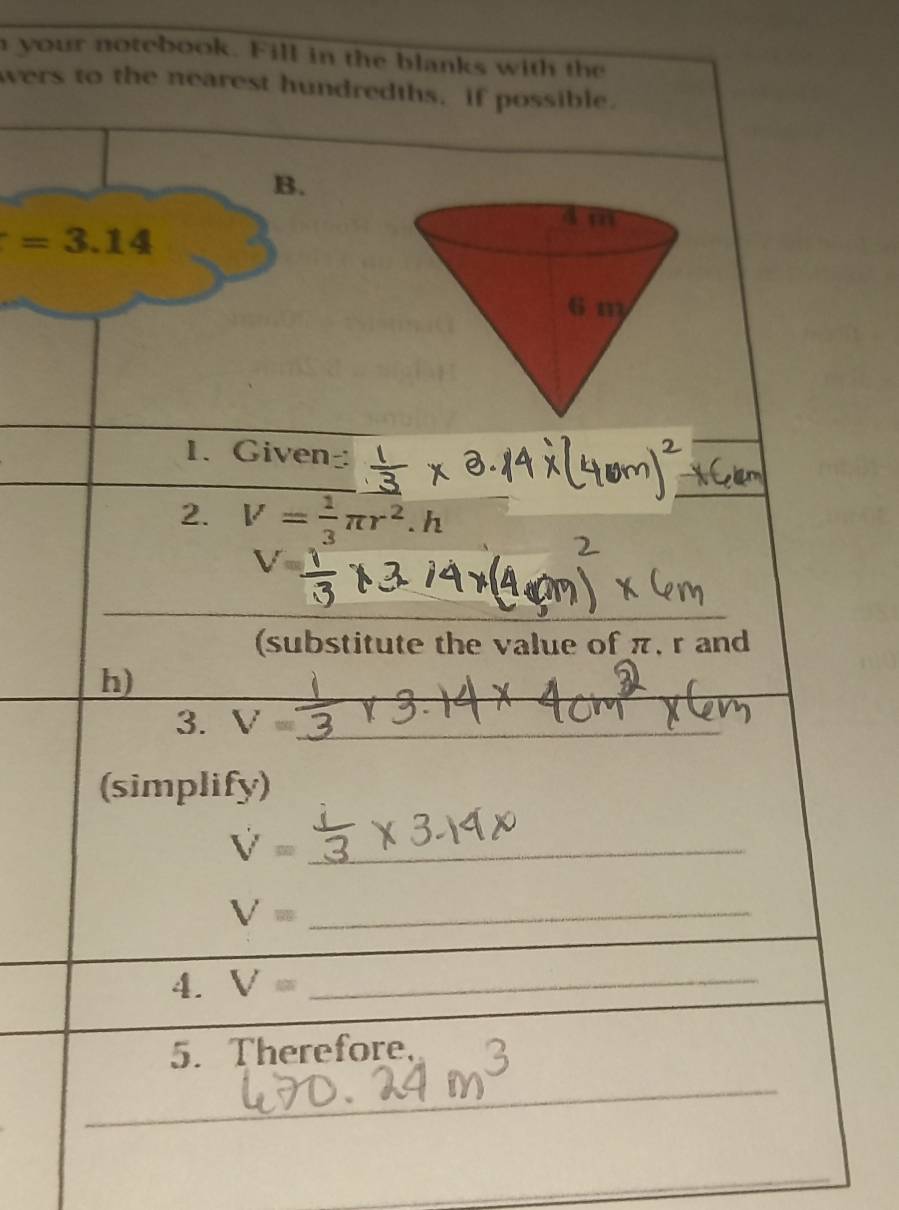 your notebook. Fill in the blanks with the
wers to the nearest hundredths, if possible.
B.
= 3.14
4 m
6 m
1. Given: 1/3 × 3.14 × (4cm)² × 6cm
2. V = 1/3 πr². h
V = 1/3 × 3.14 × (4cm)² × 6m
(substitute the value of π, r and
h)
3. V = 1/3 × 3.14 × 4cm² × 6m
(simplify)
V = 1/3 × 3.14 ×
V =
4. V =
5. Therefore,
670.24 m³